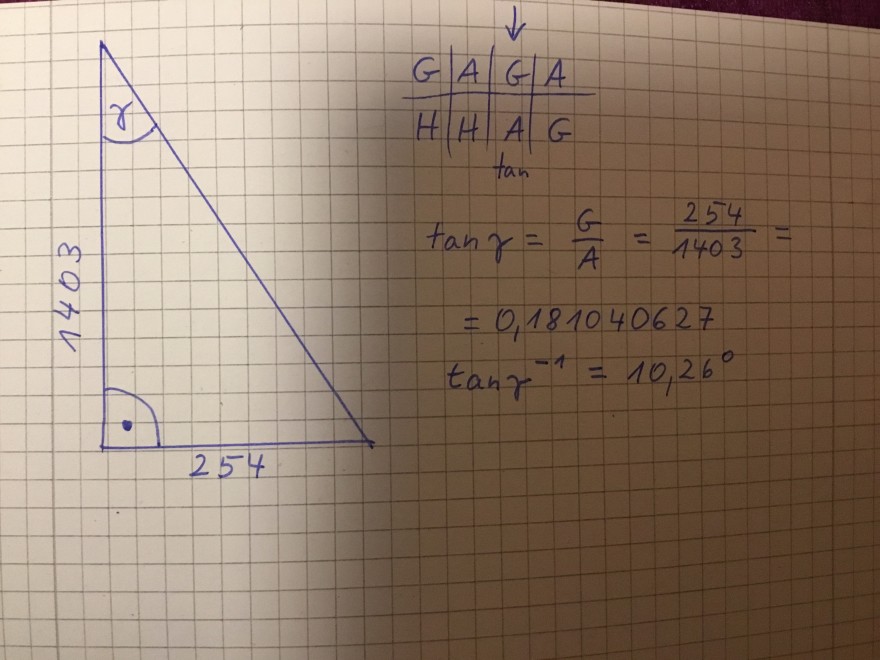 γ
1403
254
↓
G | A | G | A
H | H | A | G
tan
tan γ = G/A = 254/1403 =
= 0,181040627
tan γ⁻¹ = 10,26°